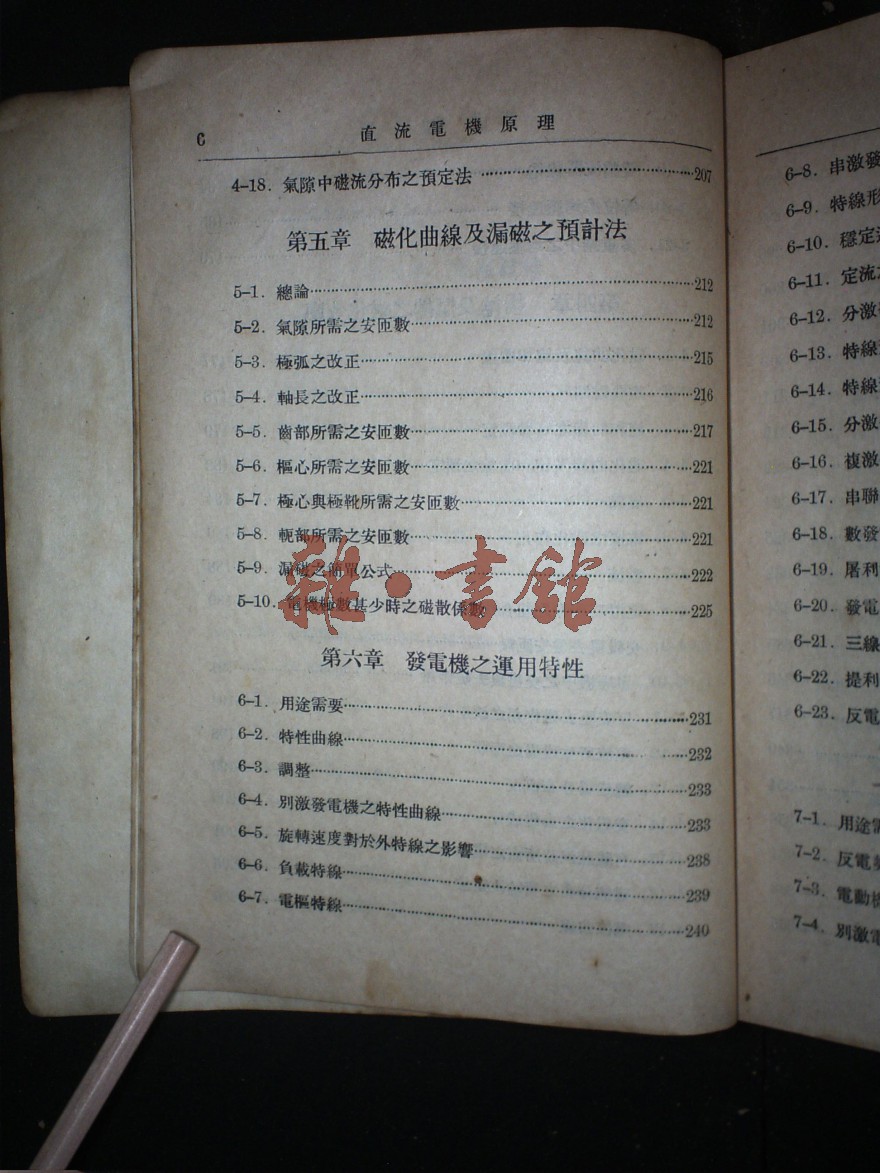 C 直流電機原理
4-18. 氣隙中磁流分布之預定法 207
第五章 磁化曲線及漏磁之預計法
5-1. 總論 212
5-2. 氣隙所需之安匝數 212
5-3. 極弧之改正 215
5-4. 軸長之改正 216
5-5. 齒部所需之安匝數 217
5-6. 樞心所需之安匝數 221
5-7. 極心與極靴所需之安匝數 221
5-8. 軛部所需之安匝數 221
5-9. 漏磁之簡單公式 222
5-10. 電機極數甚少時之磁散係數 225
雜·書館
第六章 發電機之運用特性
6-1. 用途需要 231
6-2. 特性曲線 232
6-3. 調整 233
6-4. 別激發電機之特性曲線 233
6-5. 旋轉速度對於外特線之影響 238
6-6. 負載特線 239
6-7. 電樞特線 240
6-8. 串激發
6-9. 特線形
6-10. 穩定
6-11. 定流
6-12. 分激
6-13. 特線
6-14. 特線
6-15. 分激
6-16. 複激
6-17. 串聯
6-18. 數發
6-19. 屠利
6-20. 發電
6-21. 三線
6-22. 提利
6-23. 反電
7-1. 用途需
7-2. 反電
7-3. 電動機
7-4. 別激電